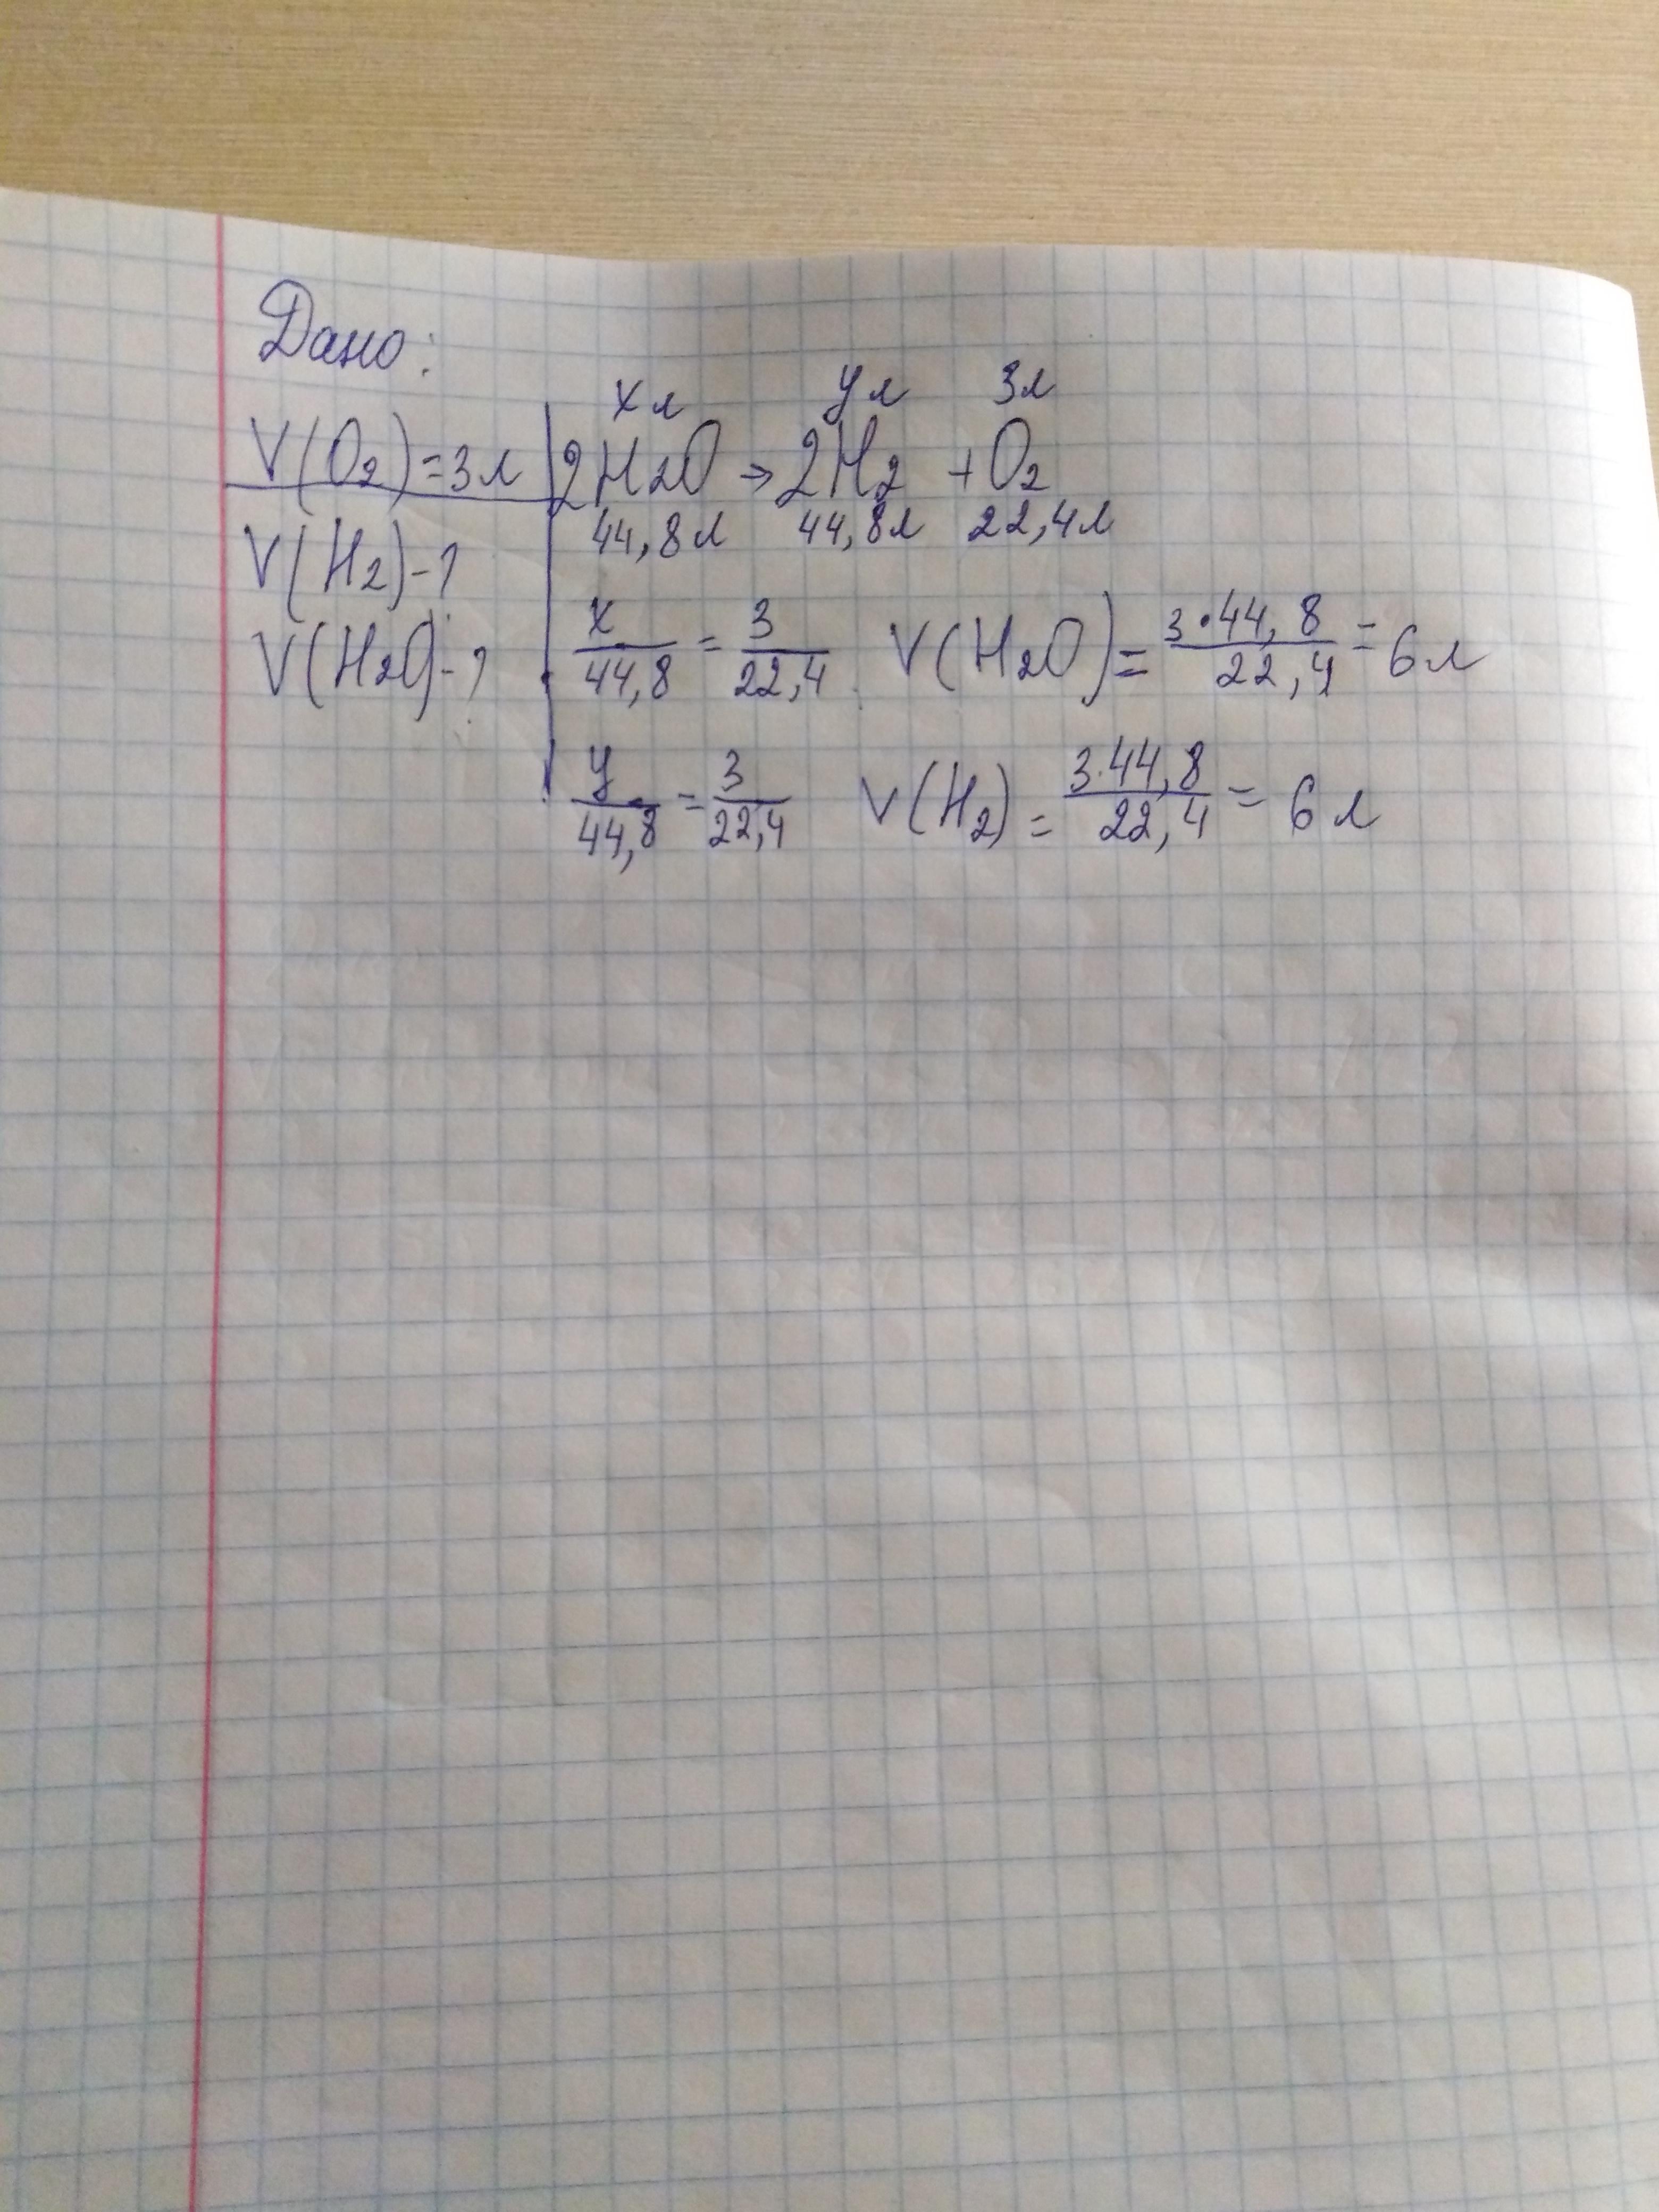 Дано:
V(O2)=3л
V(H2)-?
V(H2O)-?
xл yл 3л
2H2O → 2H2 + O2
44,8л 44,8л 22,4л
x/44,8 = 3/22,4 V(H2O) = 3·44,8/22,4 = 6л
y/44,8 = 3/22,4 V(H2) = 3·44,8/22,4 = 6л